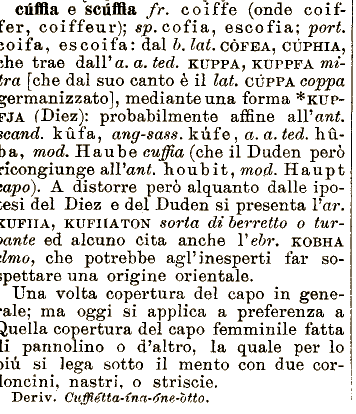 cúffia e scúffia fr. coiffe (onde coif-
fer, coiffeur); sp. cofia, escofia; port.
coifa, escoifa: dal b. lat. CÒFEA, CÚPHIA,
che trae dall'a. a. ted. KUPPA, KUPPFA mi-
tra [che dal suo canto è il lat. CÚPPA coppa
germanizzato], mediante una forma *KUP-
FJA (Diez): probabilmente affine all'ant.
scand. kûfa, ang-sass. kúfe, a. a. ted. hû-
ba, mod. Haube cuffia (che il Duden però
ricongiunge all'ant. houbit, mod. Haupt
capo). A distorre però alquanto dalle ipo-
tesi del Diez e del Duden si presenta l'ar.
KUFIIA, KUFIIATON sorta di berretto o tur-
bante ed alcuno cita anche l'ebr. KOBHA
elmo, che potrebbe agl'inesperti far so-
spettare una origine orientale.
Una volta copertura del capo in gene-
rale; ma oggi si applica a preferenza a
Quella copertura del capo femminile fatta
di pannolino o d'altro, la quale per lo
più si lega sotto il mento con due cor-
doncini, nastri, o striscie.
Deriv. Cuffiétta-ína-óne-òtto.